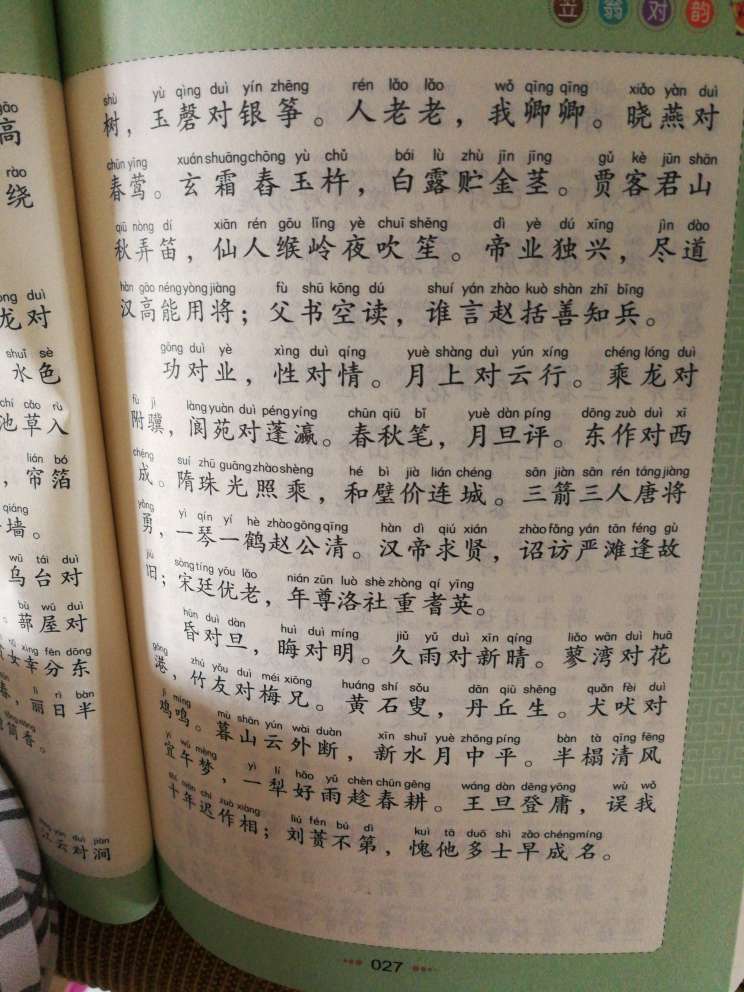 立翁对韵
高
绕
龙对
水色
池草入
帘箔
墙。
乌台对
蔀屋对
女幸分东
丽日半
筒香。
江云对涧
shù yù qìng duì yín zhēng rén lǎo lǎo wǒ qīng qīng xiǎo yàn duì
树，玉磬对银筝。人老老，我卿卿。晓燕对
chūn yīng xuán shuāng chōng yù chǔ bái lù zhù jīn jīng gǔ kè jūn shān
春莺。玄霜舂玉杵，白露贮金茎。贾客君山
qiū nòng dí xiān rén gōu lǐng yè chuī shēng dì yè dú xīng jìn dào
秋弄笛，仙人缑岭夜吹笙。帝业独兴，尽道
hàn gāo néng yòng jiàng fù shū kōng dú shuí yán zhào kuò shàn zhī bīng
汉高能用将；父书空读，谁言赵括善知兵。
gōng duì yè xìng duì qíng yuè shàng duì yún xíng chéng lóng duì
功对业，性对情。月上对云行。乘龙对
fù jì làng yuàn duì péng yíng chūn qiū bǐ yuè dàn píng dōng zuò duì xī
附骥，阆苑对蓬瀛。春秋笔，月旦评。东作对西
chéng suí zhū guāng zhào shèng hé bì jià lián chéng sān jiàn sān rén táng jiàng
成。隋珠光照乘，和璧价连城。三箭三人唐将
yǒng yì qín yí hè zhào gōng qīng hàn dì qiú xián zhào fǎng yán tān féng gù
勇，一琴一鹤赵公清。汉帝求贤，诏访严滩逢故
jiù sòng tíng yōu lǎo nián zūn luò shè zhòng qí yīng
旧；宋廷优老，年尊洛社重耆英。
hūn duì dàn huì duì míng jiǔ yǔ duì xīn qíng liǎo wān duì huā
昏对旦，晦对明。久雨对新晴。蓼湾对花
gǎng zhú yǒu duì méi xiōng huáng shí sǒu dān qiū shēng quǎn fèi duì
港，竹友对梅兄。黄石叟，丹丘生。犬吠对
jī míng mù shān yún wài duàn xīn shuǐ yuè zhōng píng bàn tà qīng fēng
鸡鸣。暮山云外断，新水月中平。半榻清风
yí wǔ mèng yì lí hǎo yǔ chèn chūn gēng wáng dàn dēng yōng wù wǒ
宜午梦，一犁好雨趁春耕。王旦登庸，误我
shí nián chí zuò xiàng liú fén bú dì kuì tā duō shì zǎo chéng míng
十年迟作相；刘蕡不第，愧他多士早成名。
027